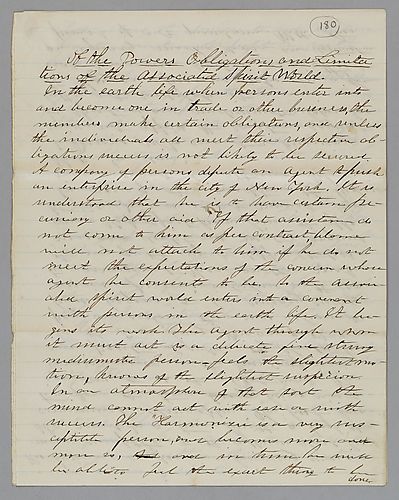 180
Of the Powers Obligations and Limita
tions of the Associated Spirit World.
In the earth life when persons enter into
and become one in trade or other business, the
members make certain obligations, and unless
the individuals all meet their respective ob-
ligations success is not likely to be secured.
A company of persons depute an agent to push
an enterprise in the city of New York. It is
understood that he is to have certain pe
cuniary or other aid. If that assistance do
not come to him as per contract, blame
will not attach to him if he do not
meet the expectations of the concern whose
agent he consents to be. So the associ-
ated spirit world enters into a covenant
with persons in the earth life. It be
gins its work. The agent through whom
it must act is a delicate fine strung
mediumistic person—feels the slightest mo
tion, knows of the slightest suspicion.
In an atmosphere of that sort the
mind cannot act with ease or with
success. The "Harmonizer" is a very sus-
ceptible person, and becomes more and
more so, and in time he will
be able to feel the exact thing to be
done